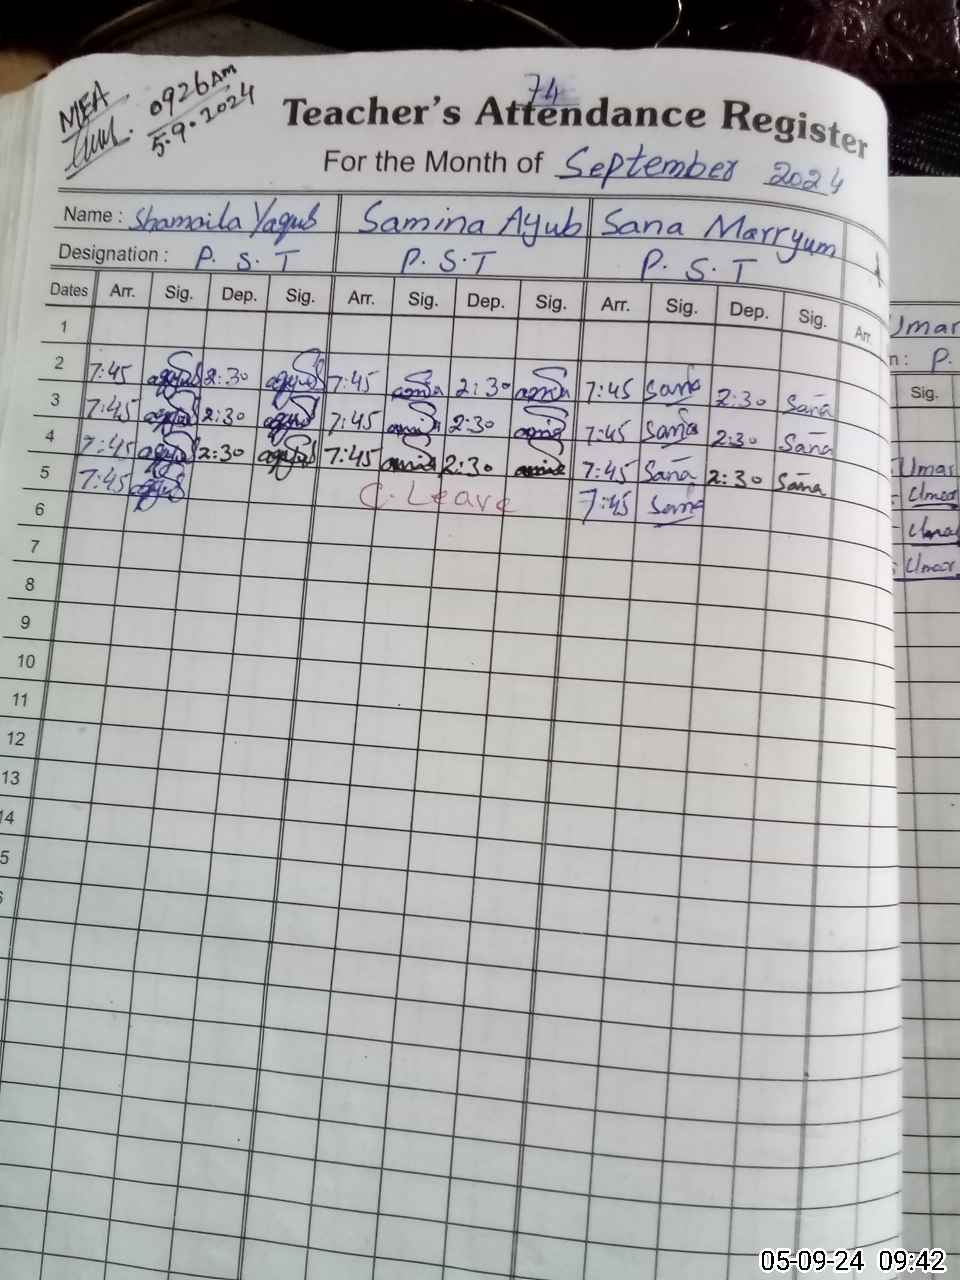 MEA 0926 AM
5.9.2024
74
Teacher's Attendance Register
For the Month of September 2024
Name : Shamaila Yaqub Samina Ayub Sana Marryum
Designation : P. S. T P. S. T P. S. T
Dates Arr. Sig. Dep. Sig. Arr. Sig. Dep. Sig. Arr. Sig. Dep. Sig. Arr
1
2 7:45 2:30 7:45 2:30 7:45 Sana 2:30 Sana
3 7:45 2:30 7:45 2:30 7:45 Sana 2:30 Sana
4 7:45 2:30 7:45 2:30 7:45 Sana 2:30 Sana
5 7:45 C. Leave 7:45 Sana
6
7
8
9
10
11
12
13
14
5
Umar
n: P.
Sig.
Umar
Umar
Umar
Umar
05-09-24 09:42